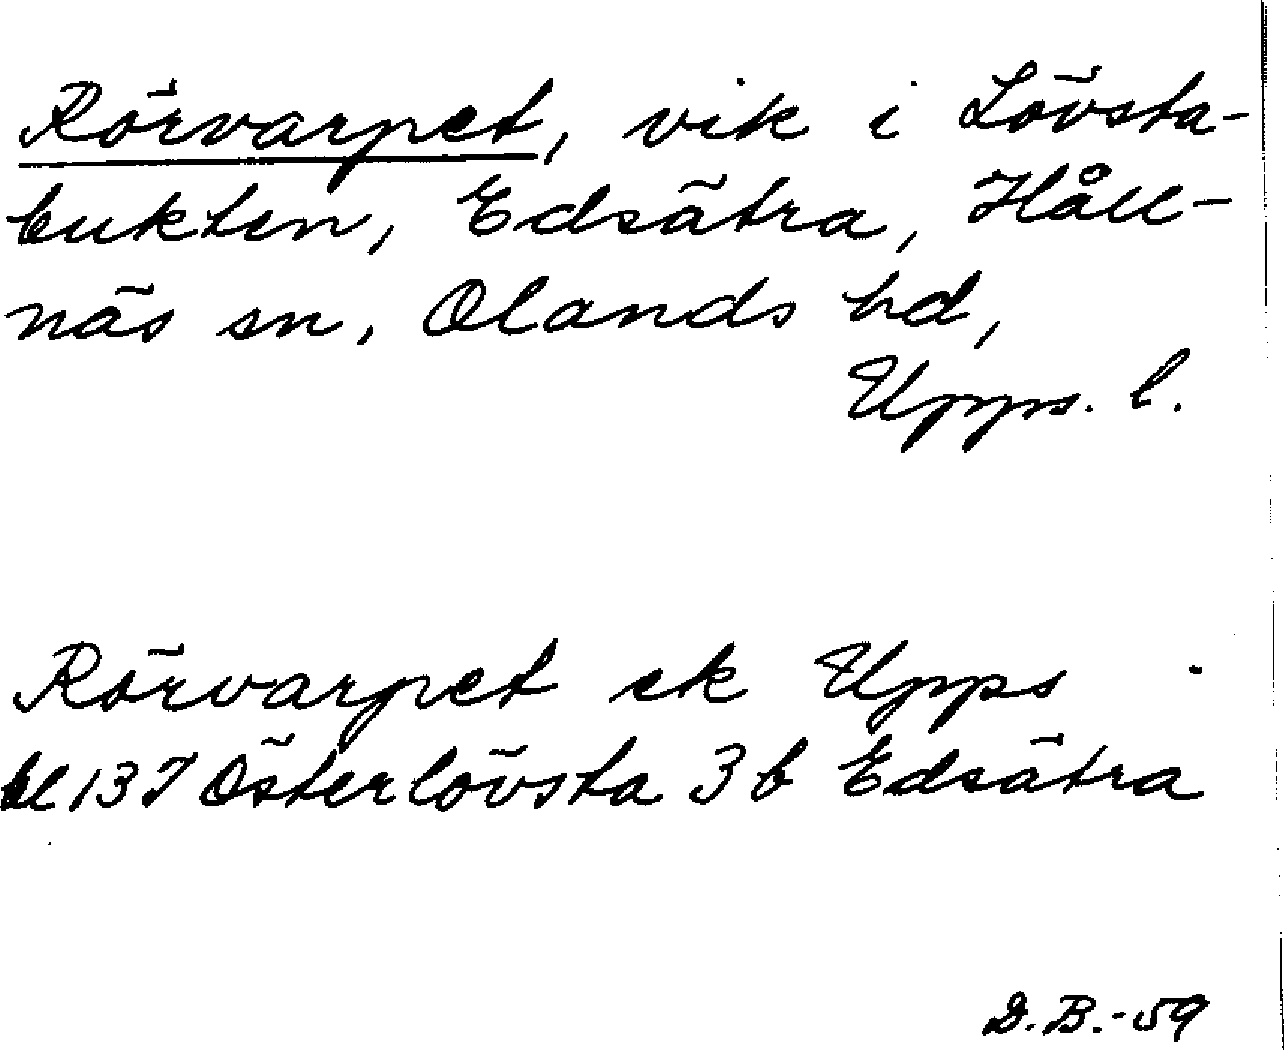 Rörvarpet, vik i Lövsta-
bukten, Edsätra, Håll-
näs sn, Olands hd,
Upps. l.
Rörvarpet ek Upps
bl 137 Österlövsta 3b Edsätra
D.B.-59